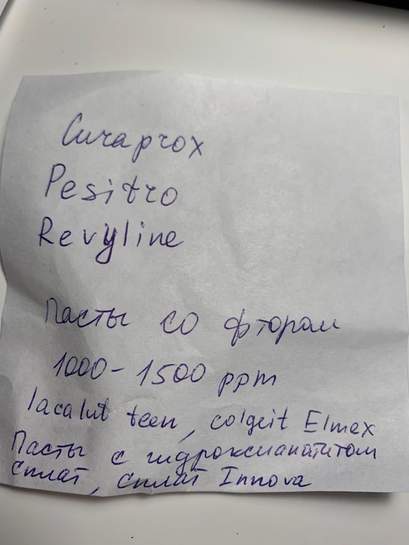 Curaprox
Pesitro
Revyline
Пасты со фтором
1000-1500 ppm
lacalut teen, colgeit Elmex
Пасты с гидроксиапатитом
Сплат, Сплат Innova